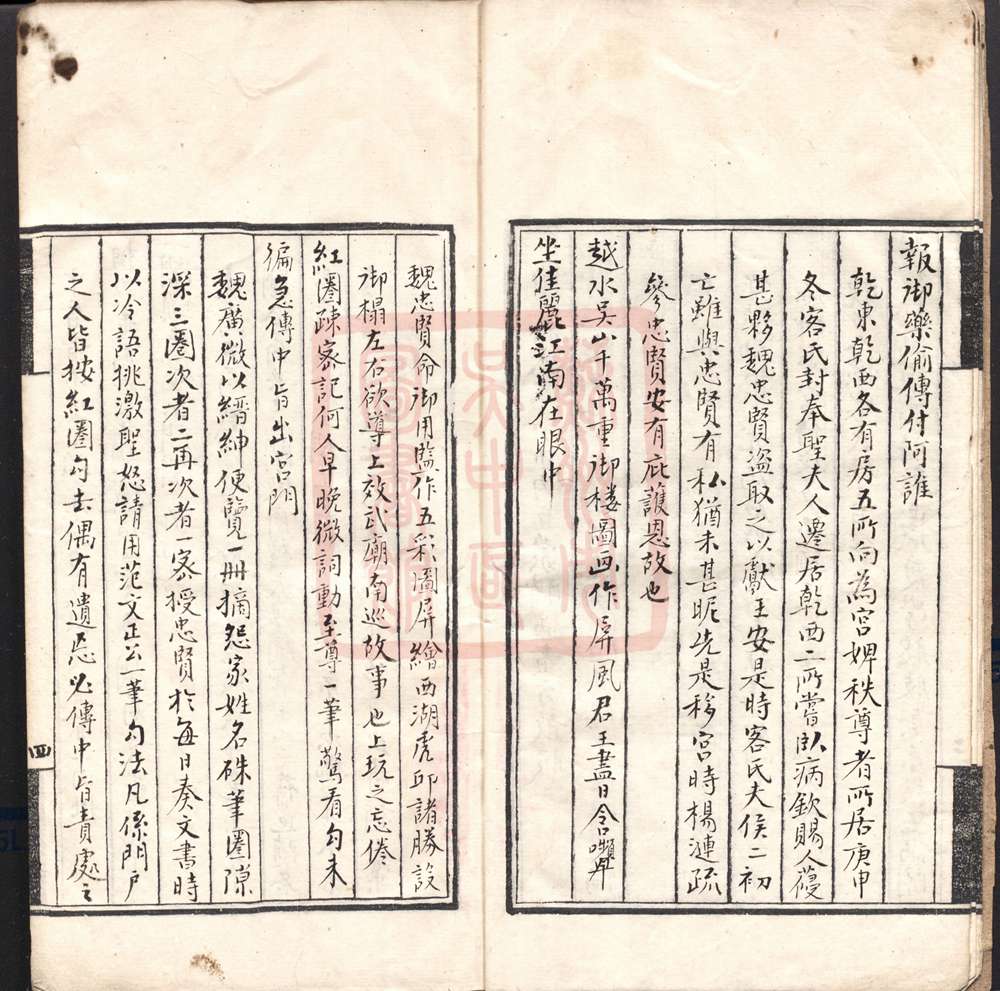 報御藥偷傳付阿誰
乾東乾西各有房五所向為宮婢秩尊者所居庚申
冬客氏封奉聖夫人遷居乾西二所嘗臥病欽賜人葠
甚夥魏忠賢盜取之以獻王安是時客氏夫侯二初
亡雖與忠賢有私猶未甚昵先是移宮時楊漣疏
參忠賢安有庇護恩故也
越水吳山千萬重御楼圖画作屏風君王盡日含嚬
坐佳麗江南在眼中
魏忠賢命御用監作五彩圖屏繪西湖虎邱諸勝設
御榻左右欲導上效武廟南巡故事也上玩之忘倦
紅圈疎密記何人早晚微詞動至尊一筆驚看勾未
徧急傳中旨出宮門
魏廣微以縉紳便覽一冊摘怨家姓名硃筆圈隙
深三圈次者二再次者一密授忠賢於每日奏文書時
以冷語挑激聖怒請用范文正公一筆勾法凡係門户
之人皆按紅圈勾去偶有遺忘必傳中旨責處之
四